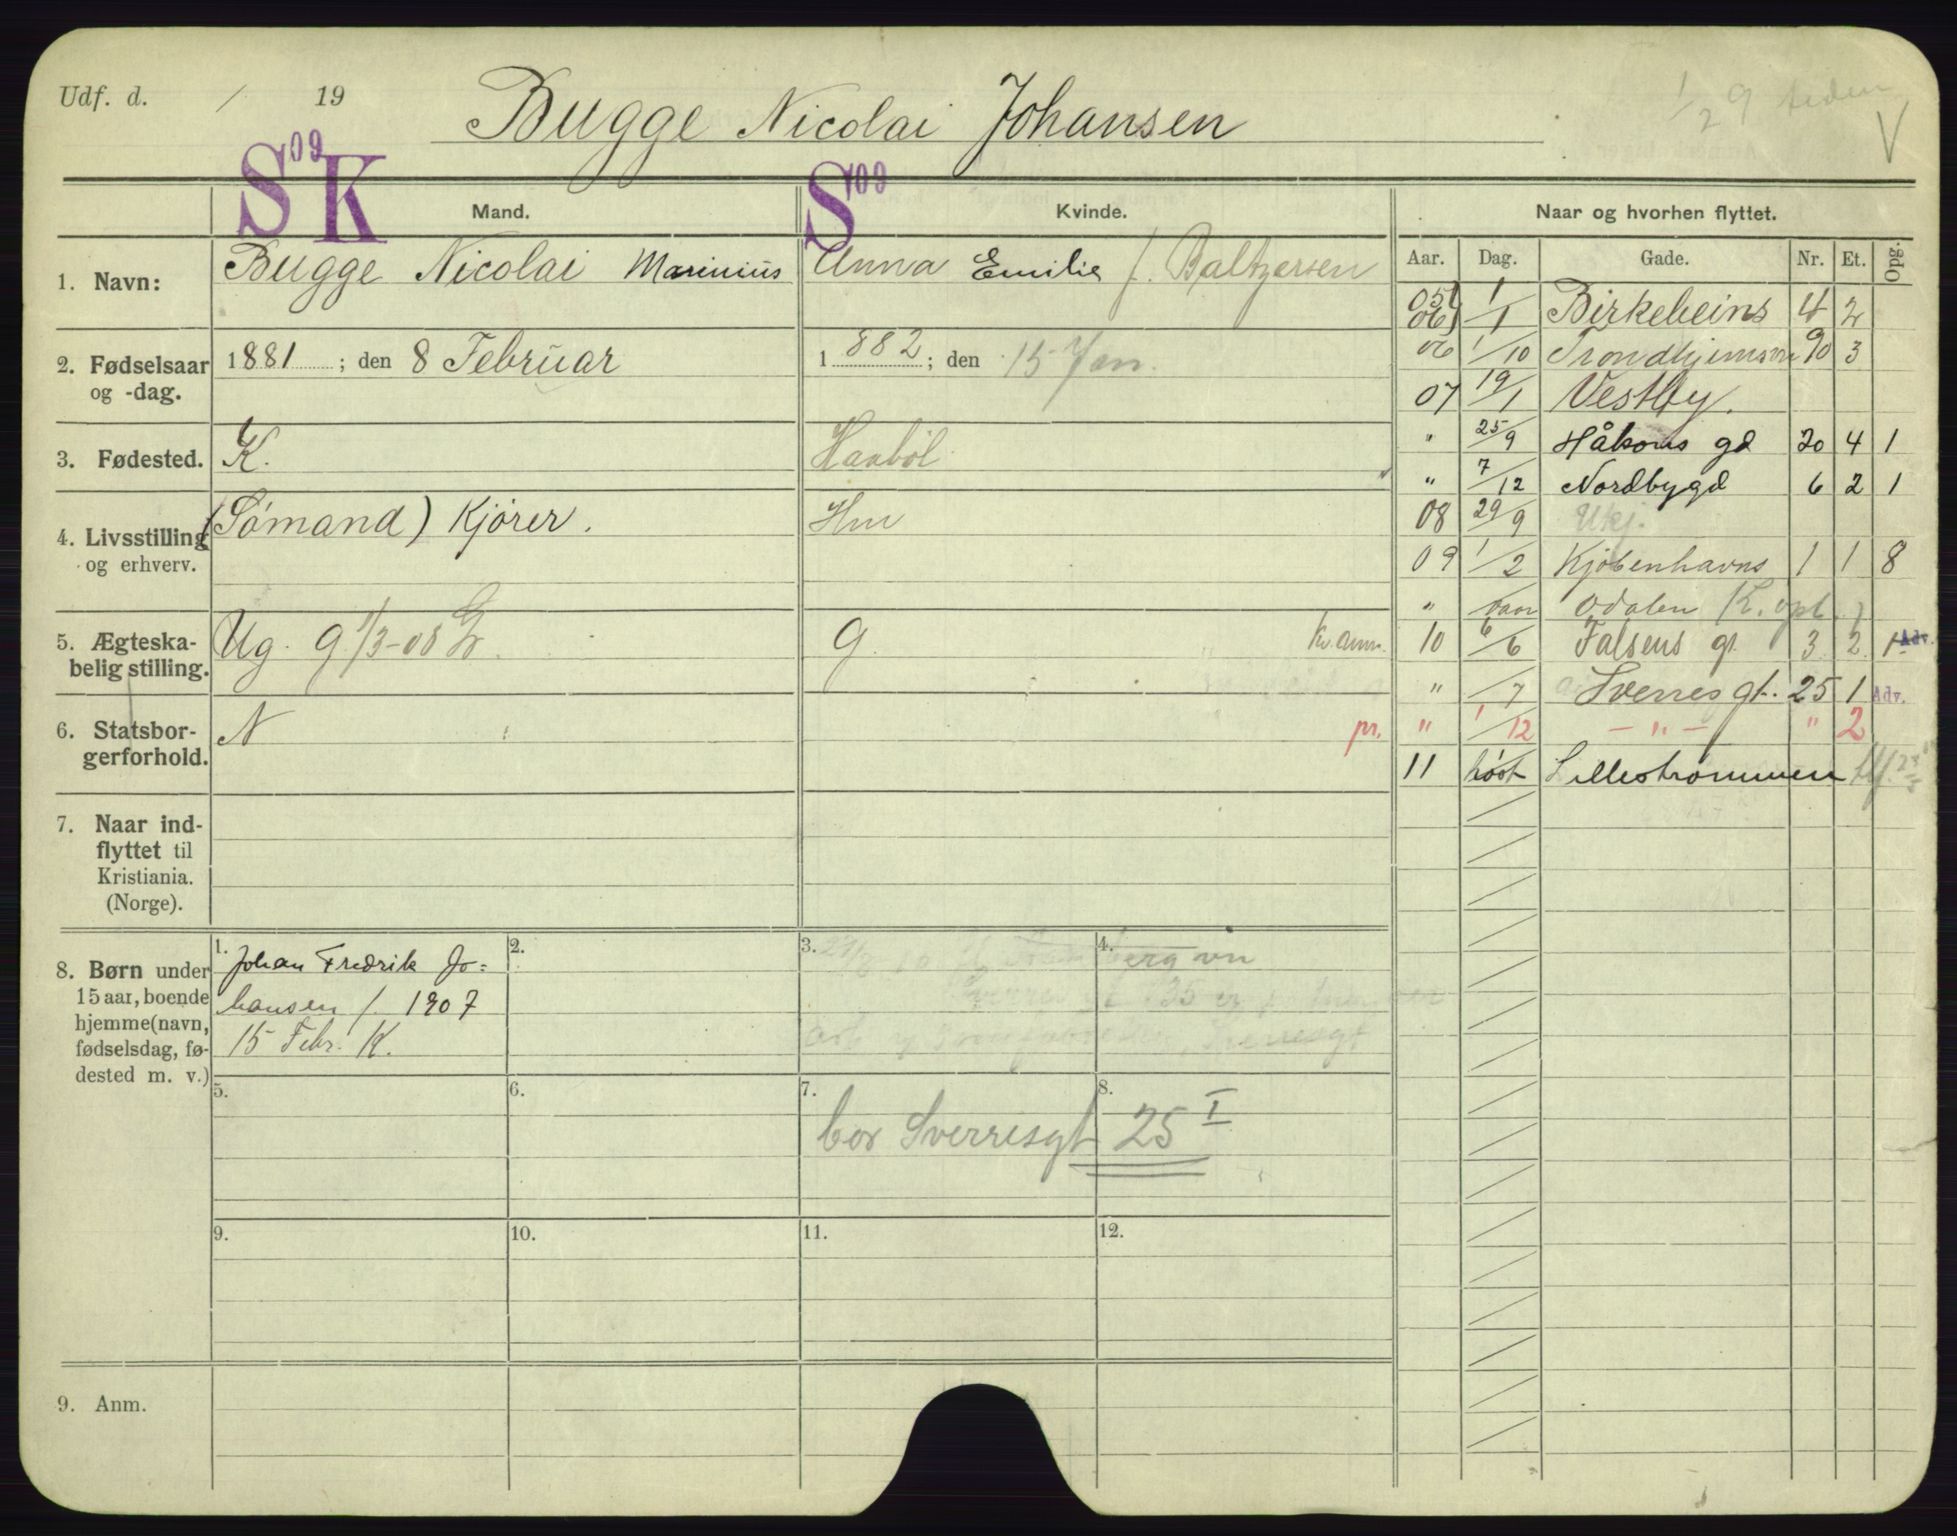 Udf. d. / 19
Bugge Nicolai Johansen
1/29
V
S09 K
S09
Mand.
Kvinde.
Naar og hvorhen flyttet.
Aar. Dag. Gade. Nr. Et. Opg.
1. Navn: Bugge Nicolai Marinius
Anna Emilie f. Baltzersen
2. Fødselsaar og -dag. 1881 ; den 8 Februar
1882 ; den 15 Jan.
3. Fødested. K.
Haabøl
4. Livsstilling og erhverv. (Sømand) Kjører.
Hm
5. Ægteska-
belig stilling. Ug. g 1/3-08
g. Kv. anm.
6. Statsbor-
gerforhold. N
pr.
7. Naar ind-
flyttet til
Kristiania.
(Norge).
05
06 1/1 Birkebeins 4 2
06 1/10 Trondhjemsvn 90 3
07 19/1 Vestby.
" 25/9 Håkons gd 20 4 1
" 7/12 Nordbygd 6 2 1
08 29/9 Ukj.
09 1/2 Kjøbenhavns 1 1 8
" vaar Odalen (K. opl.)
10 6/6 Falsens gt 3 2 1 Adv.
" /7 Sverres gt. 25 1 Adv.
" 1/12 — " — " 2
11 høst Lillestrømmen
8. Børn under
15 aar, boende
hjemme (navn,
fødselsdag, fø-
dested m. v.)
1. Johan Fredrik Jo=
hansen f. 1907
15 Febr. K.
2.
3.
4.
5.
6.
7.
8.
bor Sverresgt 25 I
9.
10.
11.
12.
9. Anm.